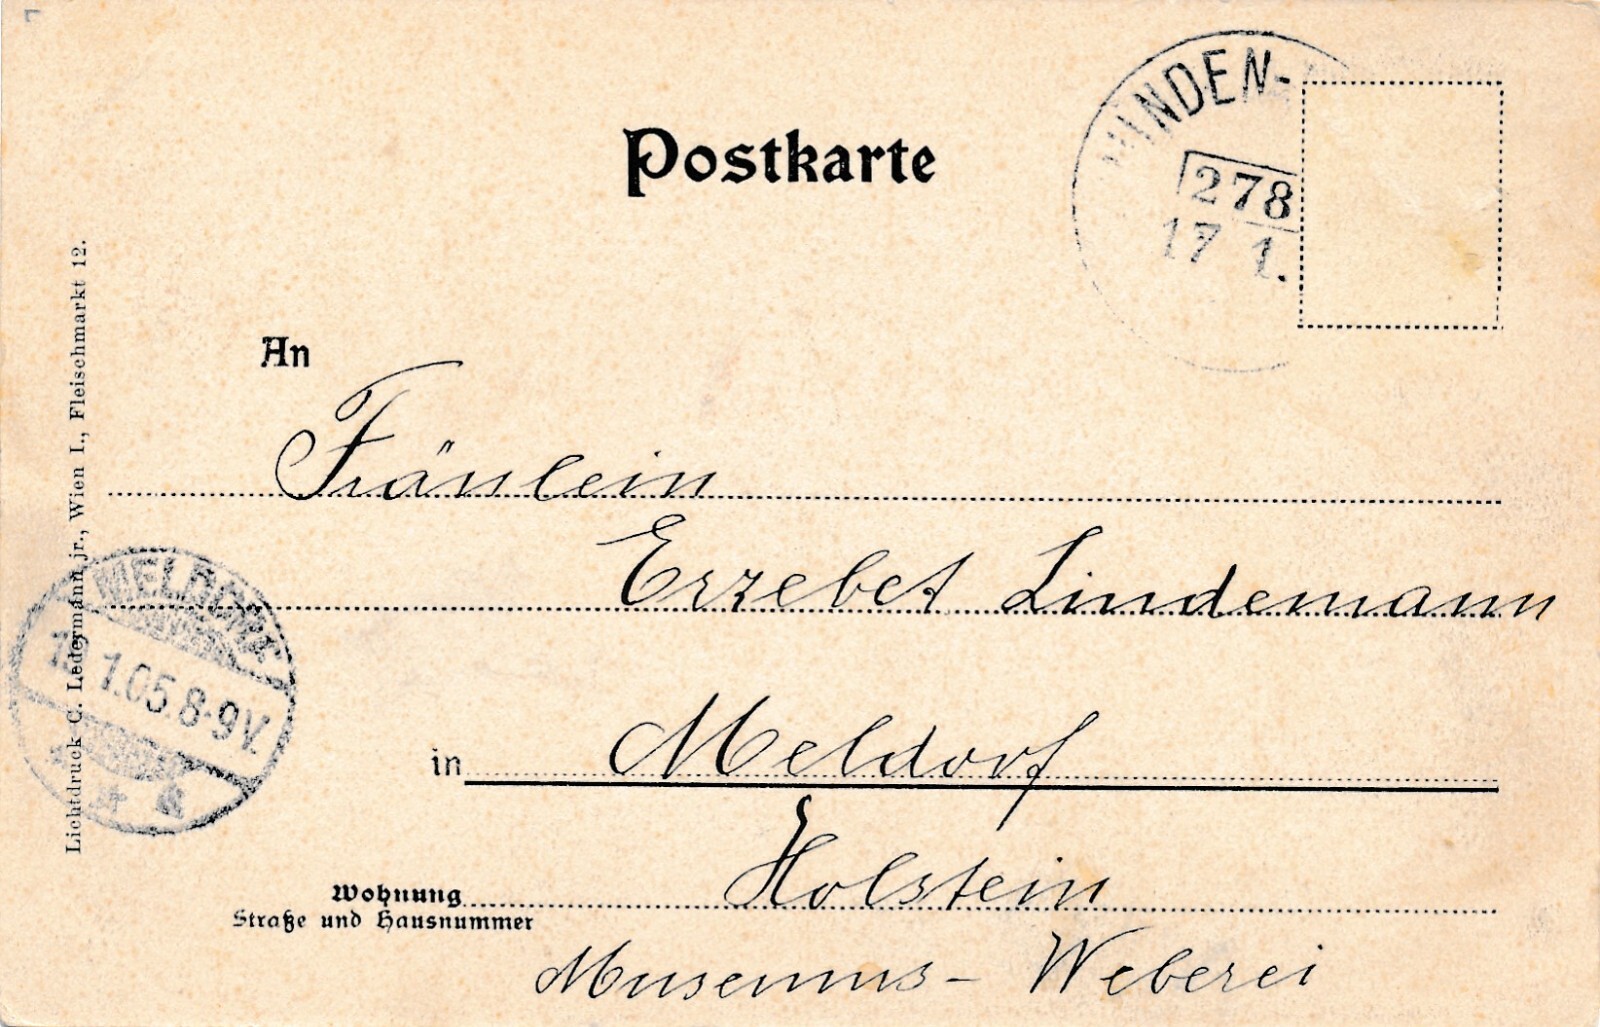 Postkarte
MINDEN-
278
17 1.
An
Fräulein
Erzebet Lindemann
in Meldorf
Holstein
Wohnung
Straße und Hausnummer
Museums-Weberei
Lichtdruck C. Ledermann jr., Wien I., Fleischmarkt 12.
MELDORF
1.05.8-9V.